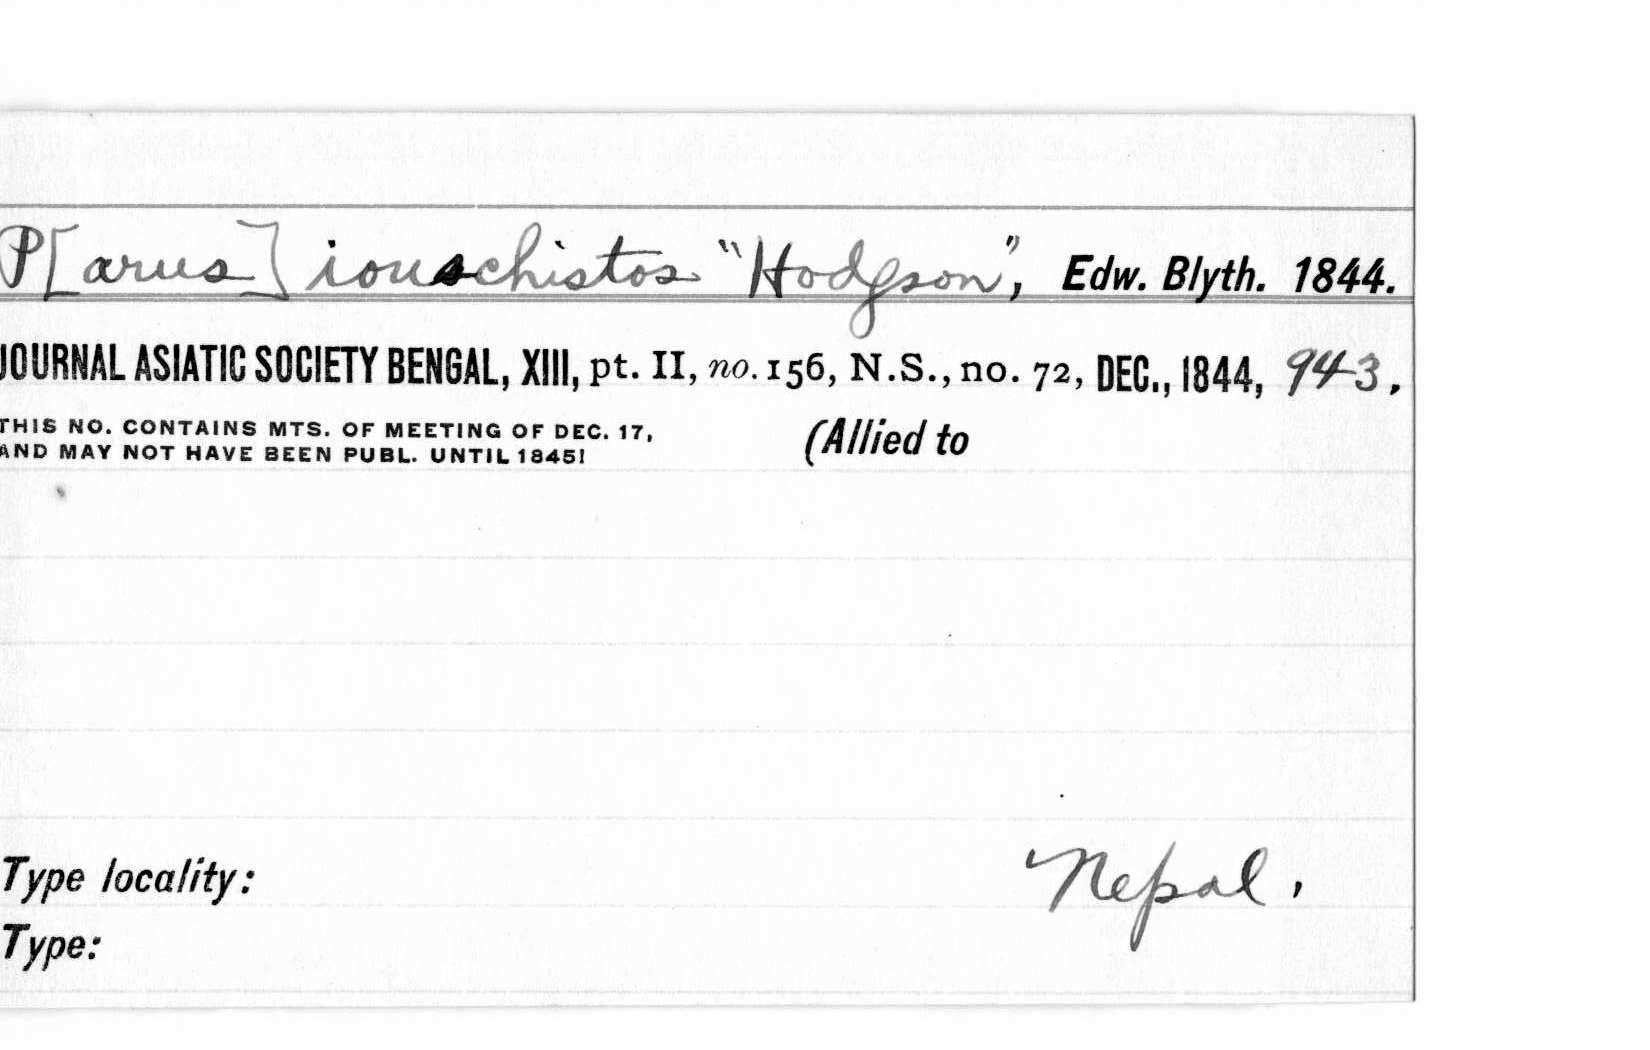 P[arus] iouschistos "Hodgson", Edw. Blyth. 1844.
JOURNAL ASIATIC SOCIETY BENGAL, XIII, pt. II, no. 156, N.S., no. 72, DEC., 1844, 943.
THIS NO. CONTAINS MTS. OF MEETING OF DEC. 17,
AND MAY NOT HAVE BEEN PUBL. UNTIL 1845!
(Allied to
Type locality: Nepal.
Type: